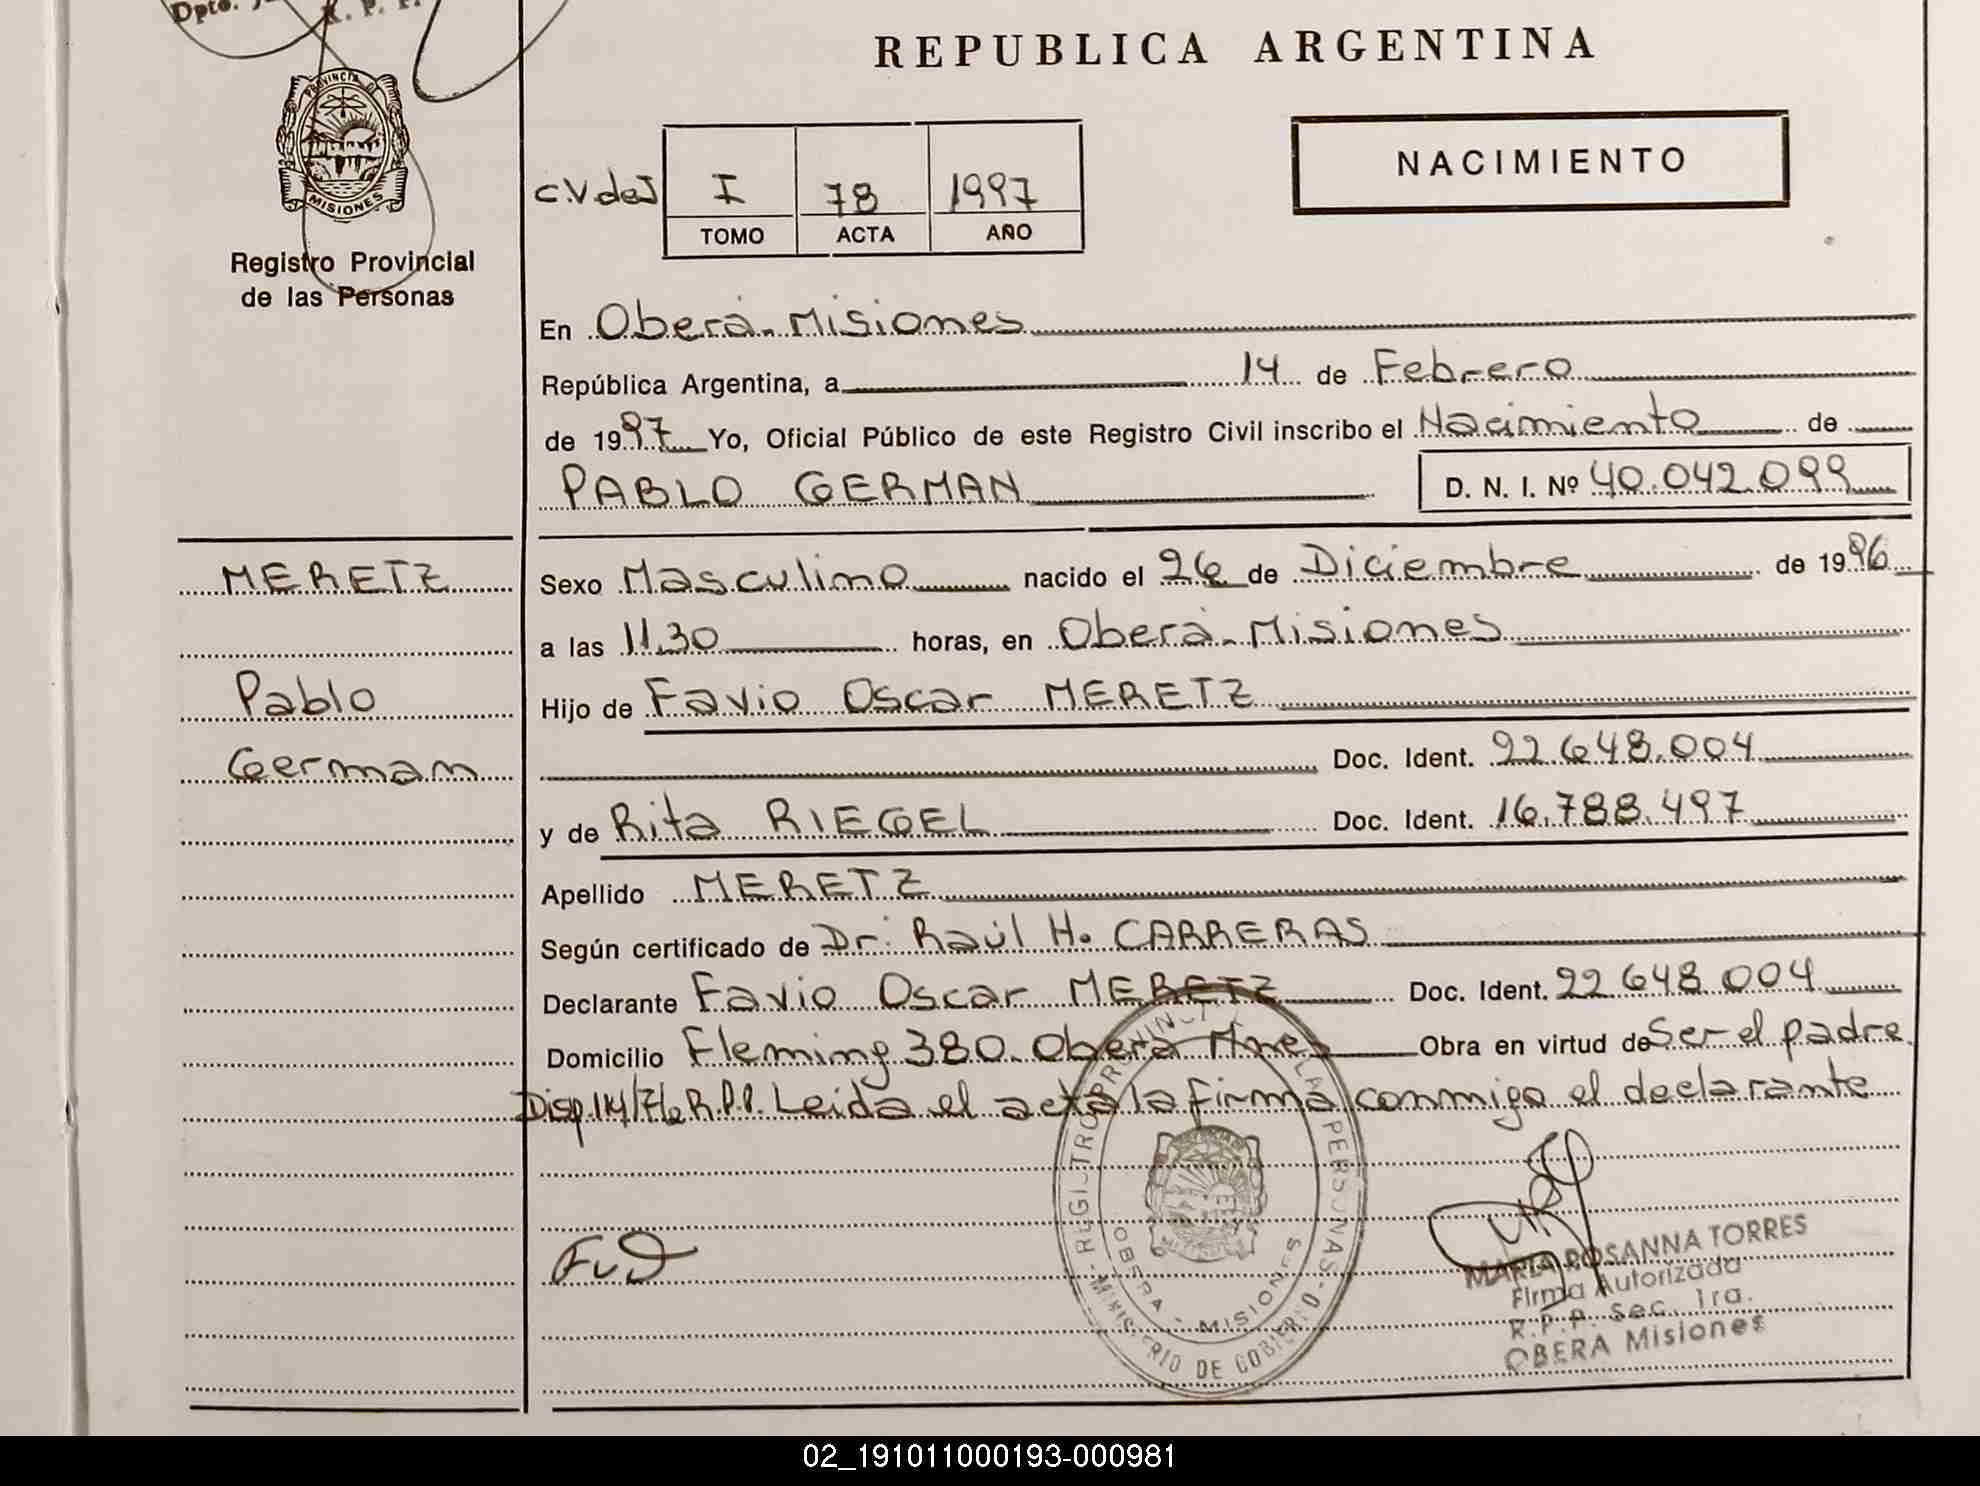 Dpto.
R. P. P.
REPUBLICA ARGENTINA
PROVINCIA DE
MISIONES
Registro Provincial
de las Personas
NACIMIENTO
C.V.deJ I 78 1997
TOMO ACTA AÑO
En Oberá. Misiones
República Argentina, a 14 de Febrero
de 1997 Yo, Oficial Público de este Registro Civil inscribo el Nacimiento de
PABLO GERMAN D. N. I. Nº 40.042.099
MERETZ
Pablo
German
Sexo Masculino nacido el 26 de Diciembre de 1996
a las 11,30 horas, en Oberá. Misiones
Hijo de Favio Oscar MERETZ
Doc. Ident. 22.648.004
y de Rita RIEGEL Doc. Ident. 16.788.497
Apellido MERETZ
Según certificado de Dr. Raúl H. CARRERAS
Declarante Favio Oscar MERETZ Doc. Ident. 22 648 004
Domicilio Fleming 380. Oberá Mnes Obra en virtud de Ser el padre
Disp.114/76 R.P.P. Leida el acta la firma conmigo el declarante
REGISTRO PROVINCIAL DE LAS PERSONAS - MINISTERIO DE GOBIERNO
OBERA - MISIONES
MARIA ROSANNA TORRES
Firma Autorizada
R.P.P. Sec. 1ra.
OBERA Misiones
02_191011000193-000981